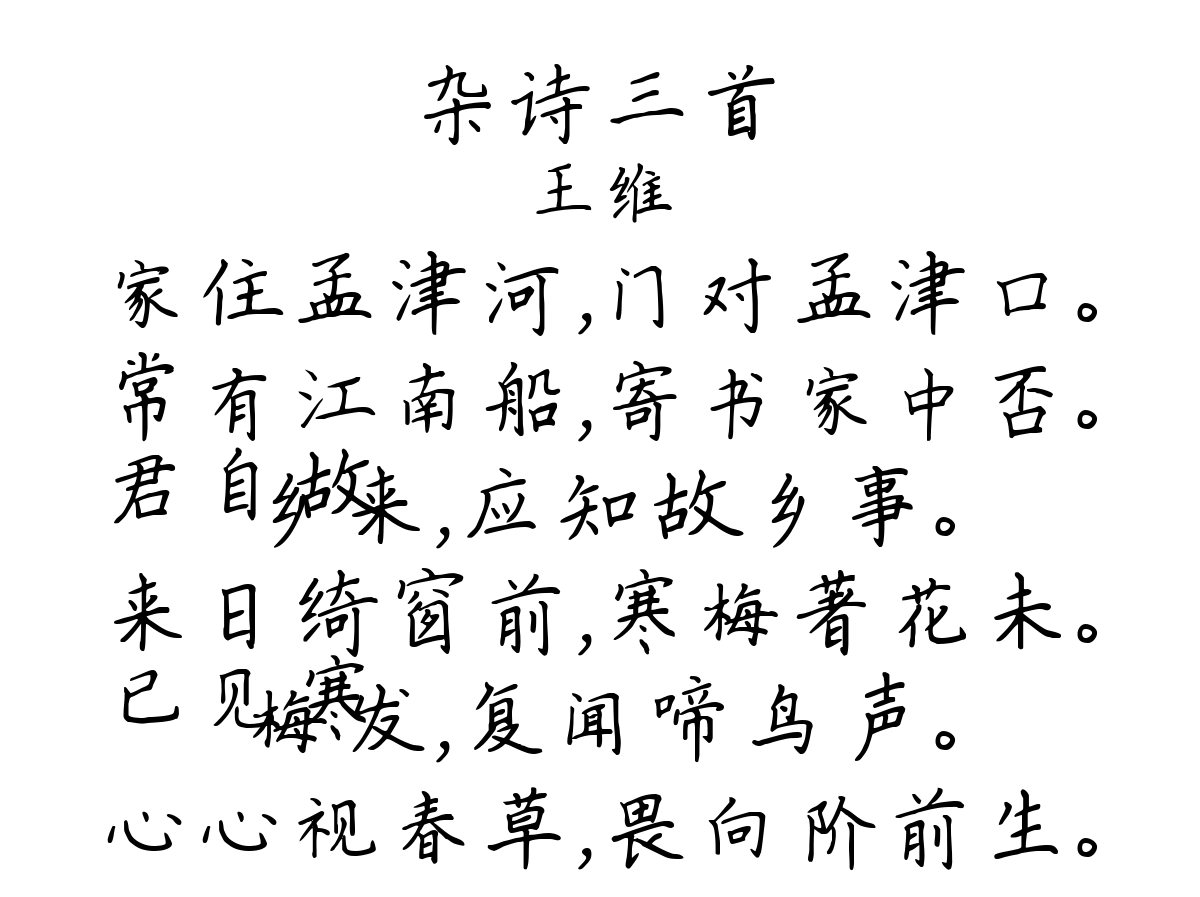 杂诗三首
王维
家住孟津河,门对孟津口。
常有江南船,寄书家中否。
君自故乡来,应知故乡事。
来日绮窗前,寒梅著花未。
已见寒梅发,复闻啼鸟声。
心心视春草,畏向阶前生。